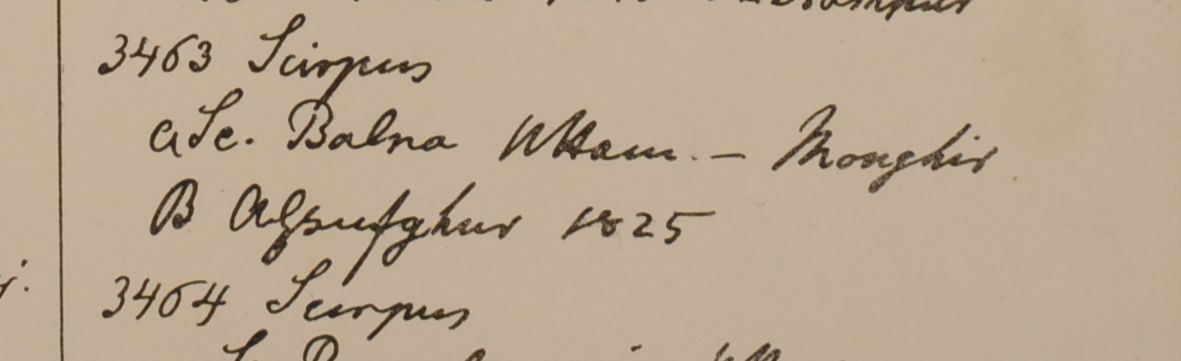 3463 Scirpus
a Sc. Balna WHam. — Monghir
B Azsufghur 1825
3464 Scirpus